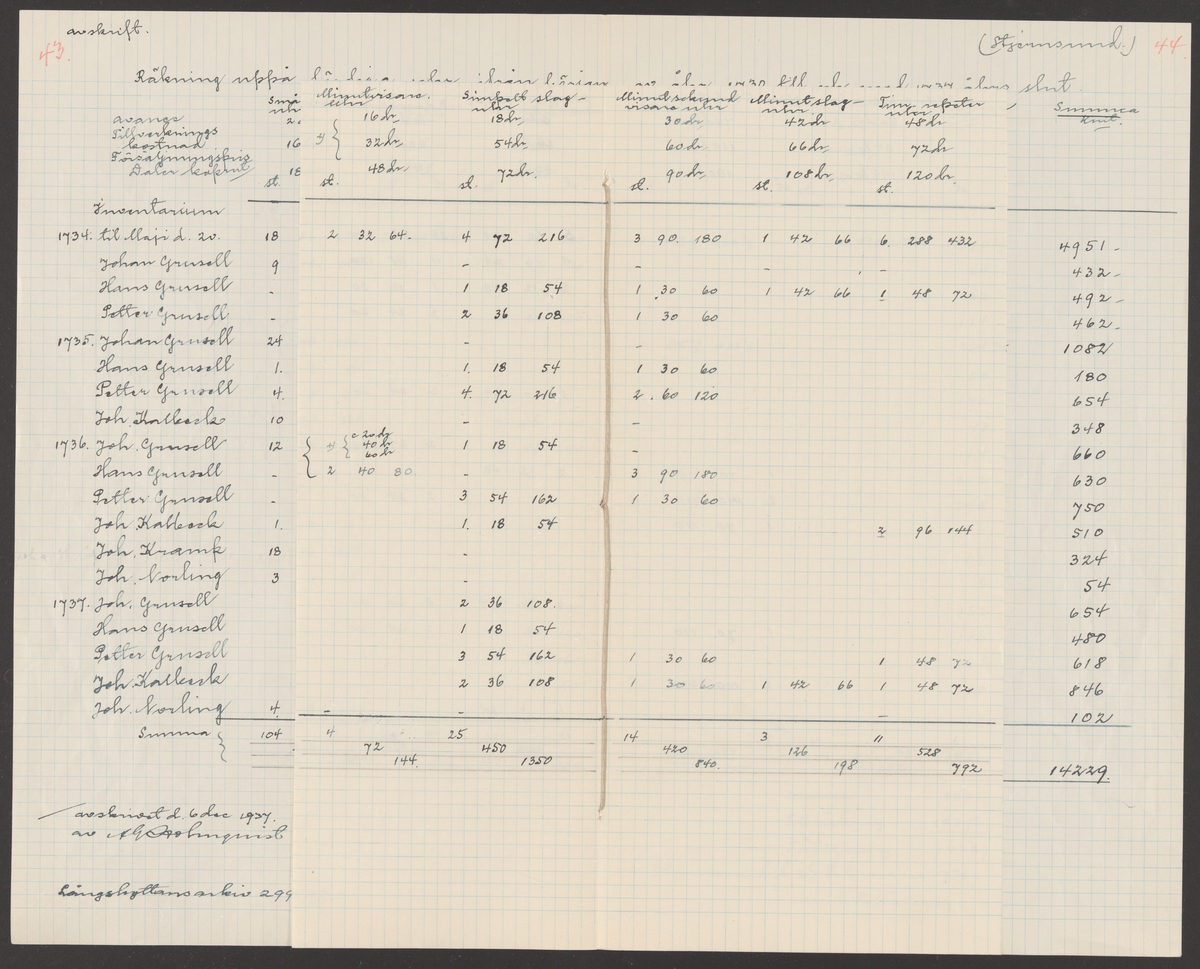 43.
avskrift.
(Stjernsund.) 44
Räkning uppå
Små uhr Minutvisare uhr Simpelt slag- uhr Minutsekund visare uhr Minutslag- uhr Tim repeter uhr Summa kmt.
avance 2. 16 dr. 18 dr. 30 dr. 42 dr 48 dr
Tillverknings kostnad 16 32 dr. 54 dr. 60 dr. 66 dr. 72 dr
Försäljningspris Daler kopmt 18 48 dr. 72 dr. 90 dr. 108 dr. 120 dr.
st. st. st. st. st. st.
Inventarium
1734. til Maji d. 20. 18 2 32 64. 4 72 216 3 90. 180 1 42 66 6. 288 432 4951 -
Johan Grusell 9 - - - - 432 -
Hans Grusell - 1 18 54 1 30 60 1 42 66 1 48 72 492 -
Petter Grusell - 2 36 108 1 30 60 462 -
1735. Johan Grusell 24 - - 1082
Hans Grusell 1. 1. 18 54 1 30 60 180
Petter Grusell 4. 4. 72 216 2. 60 120 654
Joh. Kalbeck 10 - - 348
1736. Joh. Grusell 12 c 20 dr 40 dr 60 dr 1 18 54 - 660
Hans Grusell - 2 40 80. - 3 90 180 630
Petter Grusell - 3 54 162 1 30 60 750
Joh. Kalbeck 1. 1. 18 54 2 96 144 510
Joh. Kramp 18 - 324
Joh. Norling 3 - 54
1737. Joh. Grusell 2 36 108. 654
Hans Grusell 1 18 54 480
Petter Grusell 3 54 162 1 30 60 1 48 72 618
Joh. Kalbeck 2 36 108 1 30 60 1 42 66 1 48 72 846
Joh. Norling 4. - - - 102
Summa 104 4 25 14 3 11
72 450 420 126 528
144. 1350 840. 198 792 14229.
avskrivet d. 6 dec 1937.
av A G Holmquist
Långshyttans arkiv 299